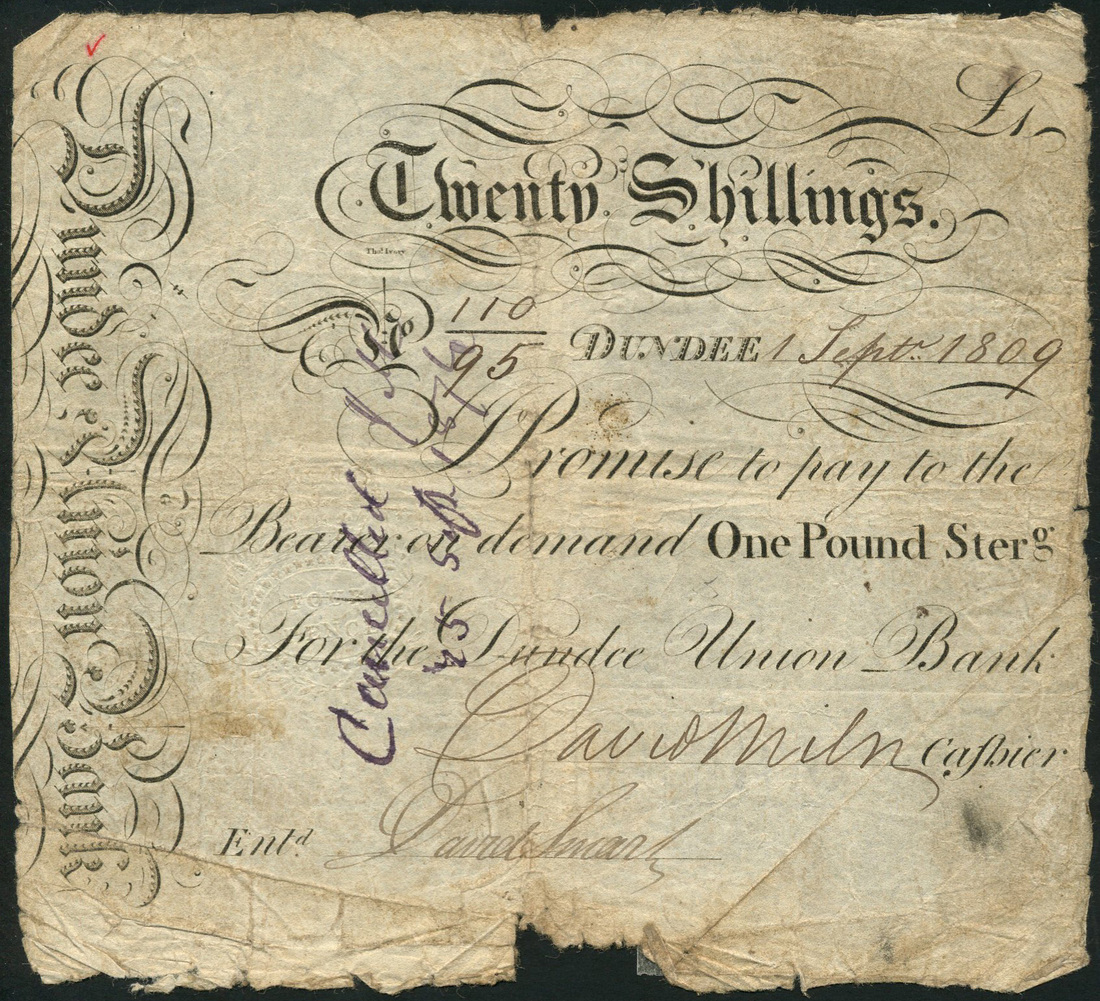 £1
Twenty Shillings.
Thos. Ivory
No 110/95 DUNDEE 1 Septr. 1809
I Promise to pay to the
Bearer on demand One Pound Sterg
For the Dundee Union Bank
David Miln Caſhier
Entd. David Smart
Dundee Union Bank
Cancelled
25 Sep 1876